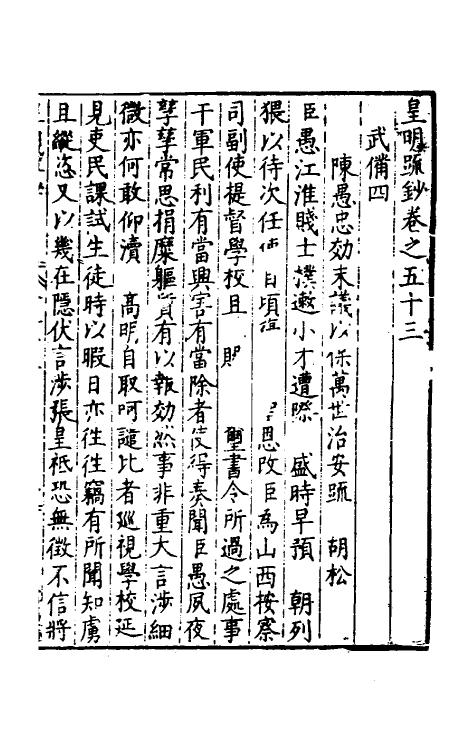 皇明疏鈔卷之五十三
武備四
陳愚忠効末議以保萬世治安疏 胡松
臣愚江淮賤士樸遬小才遭際 盛時早預 朝列
猥以待次任 日頃 恩改臣為山西按察
司副使提督學校且 聖書令所過之處事
干軍民利有當興害有當除者使得奏聞臣愚夙夜
孳孳常思捐糜軀 有以報効然事非重大言涉細
微亦何敢仰瀆 高明自取呵譴比者巡視學校延
見吏民課試生徒時以暇日亦往往竊有所聞知虜
且縱恣又以幾在隱伏言涉張皇祇恐無徵不信將